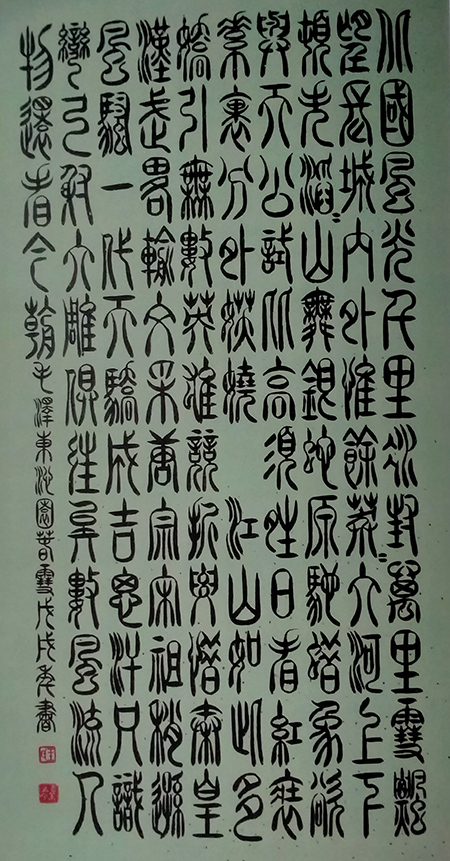 北國風光千里冰封萬里雪飄
望長城內外惟餘莽〻大河上下
頓失滔〻山舞銀蛇原馳蠟象欲
與天公試比高 須晴日看紅裝
素裹分外妖嬈 江山如此多
嬌引無數英雄競折腰惜秦皇
漢武略輸文采唐宗宋祖稍遜
風騷一代天驕成吉思汗只識
彎弓射大雕俱往矣數風流人
物還看今朝 毛澤東沁園春雪戊戌年書